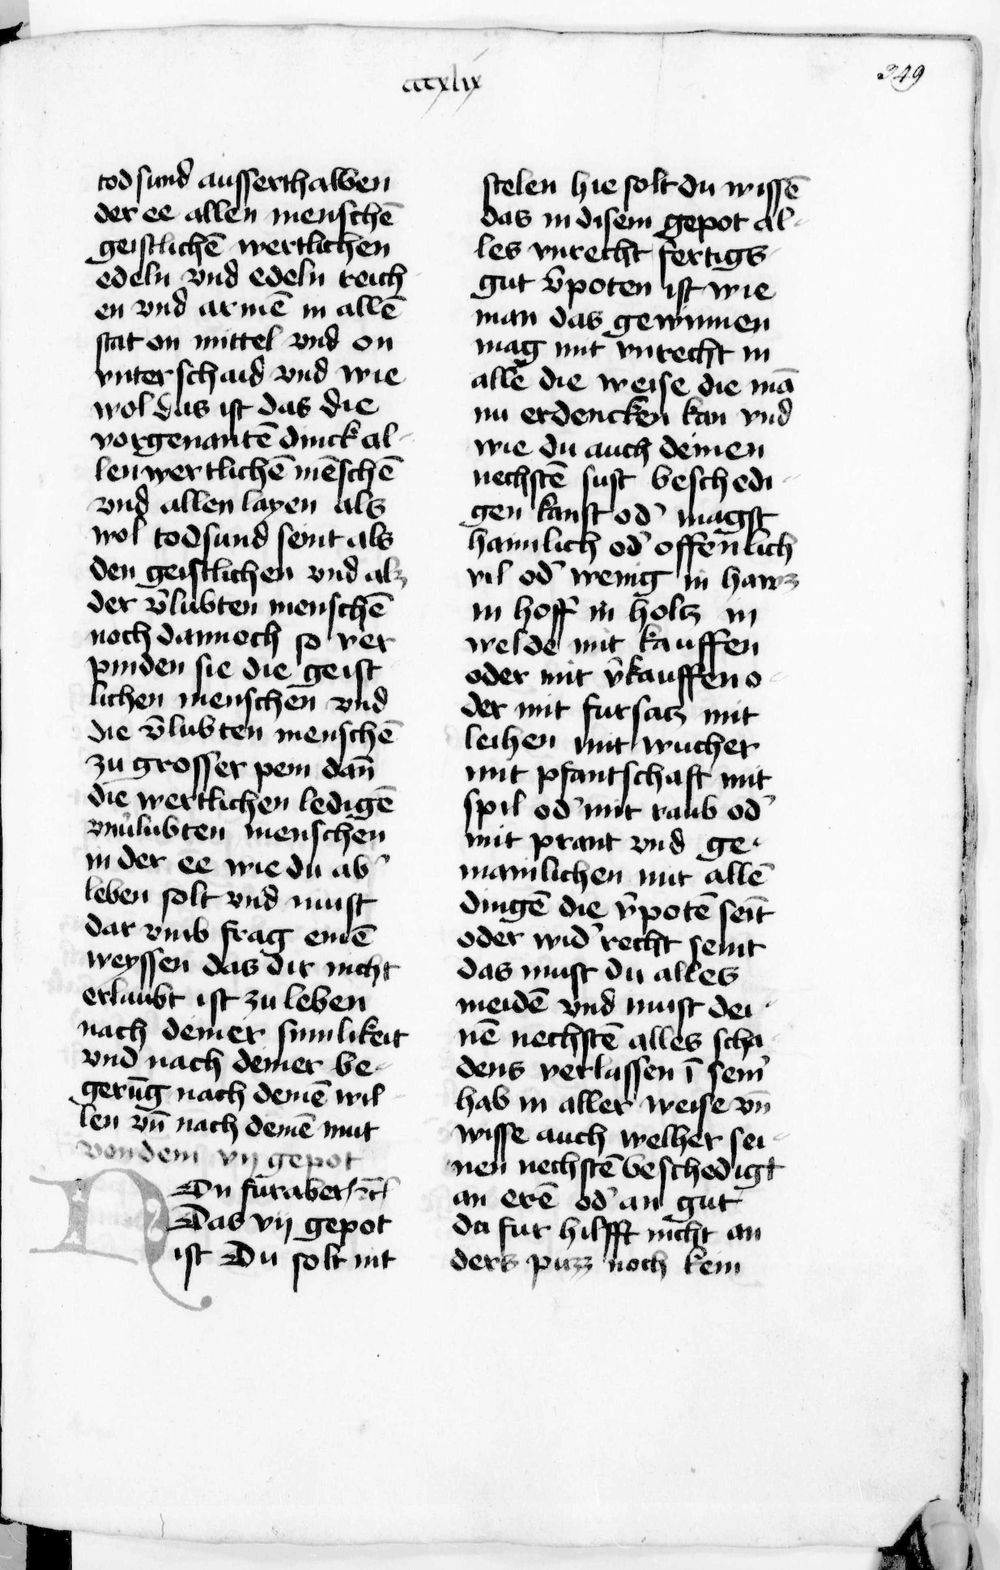 cccxlix
349
tod sund ausserthalben
der ee allen menschē
geistlichē wertlichen
edeln vnd edeln reich
en vnd armē in allē
stat on mittel vnd on
vnterschaid vnd wie
wol das ist das die
vorgenantē dinck al-
len wertlichē mēschē
vnd allen layen als
wol todsund seint als
den geistlichen vnd alz
der v̄lubten menschē
noch dannoch so ver
pinden sie die geist
lichen menschen vnd
die v̄lubten menschē
zu grosser pein dan̄
die wertlichen ledigē
vnu̓lubten menschen
in der ee wie du ab̓
leben solt vnd must
dar vmb frag einē
weyssen das dir nicht
erlaubt ist zu leben
nach deiner sinnlikeit
vnd nach deiner be-
gerūg nach deinē wil-
len vn̄ nach deinē mut
von dem vij gepot
Nu furaber ꝛc̄
Das vij gepot
ist Du solt nit
stelen hie solt du wissē
das in disem gepot al-
les vnrecht fertigs
gut v̓poten ist wie
man das gewinnen
mag mit vnrecht in
alle die weise die mā
nu erdencken kan vnd
wie du auch deinen
nechstē sust beschedi-
gen kanst od̓ magst
haimlich od̓ offenlich
vil od̓ wenig in hawz
in hoff in holtz in
welde mit kauffen
oder mit v̓kauffen o-
der mit fursatz mit
leihen mit wucher
mit pfantschaft mit
spil od̓ mit raub od̓
mit prant vnd ge-
mainlichen mit allē
dingē die v̓potē seīt
oder wid̓ recht seint
das must du alles
meidē vnd must dei-
nē nechstē alles scha-
dens verlassen ī sein̓
hab in aller weise vn̄
wisse auch welher sei-
nen nechstē beschedigt
an erē od̓ an gut
da fur hilfft nicht an
ders puzz noch kein